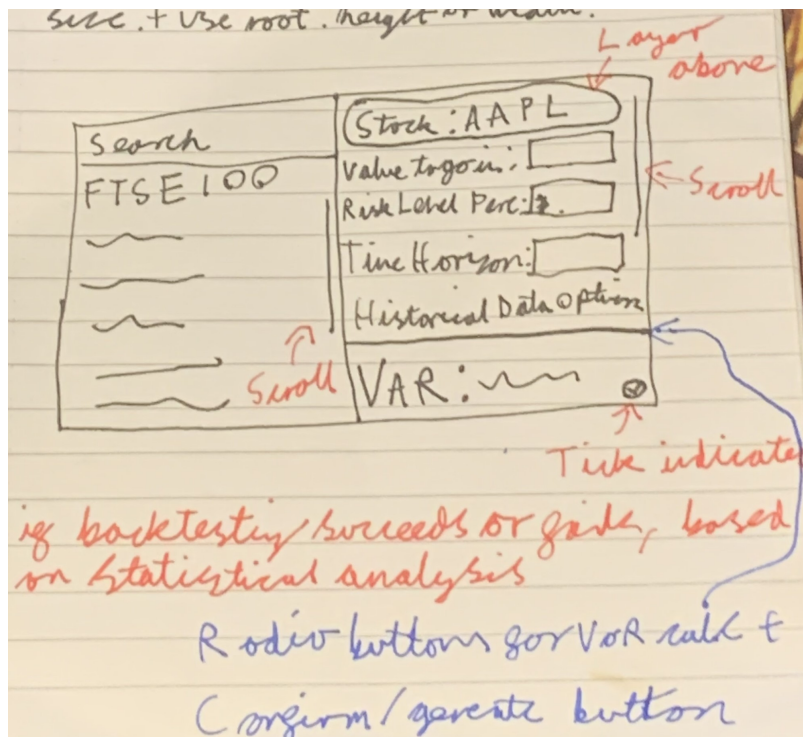 size. + Use root. height or width.
Layer
above
Search
Stock: AAPL
FTSE 100
Value to go in:
Scroll
Risk Level Perc:
Time Horizon:
Historical Data Option
Scroll
VAR:
Tick indicates
if backtesting succeeds or fails, based
on statistical analysis
Radio buttons for VaR calc +
Confirm/generate button